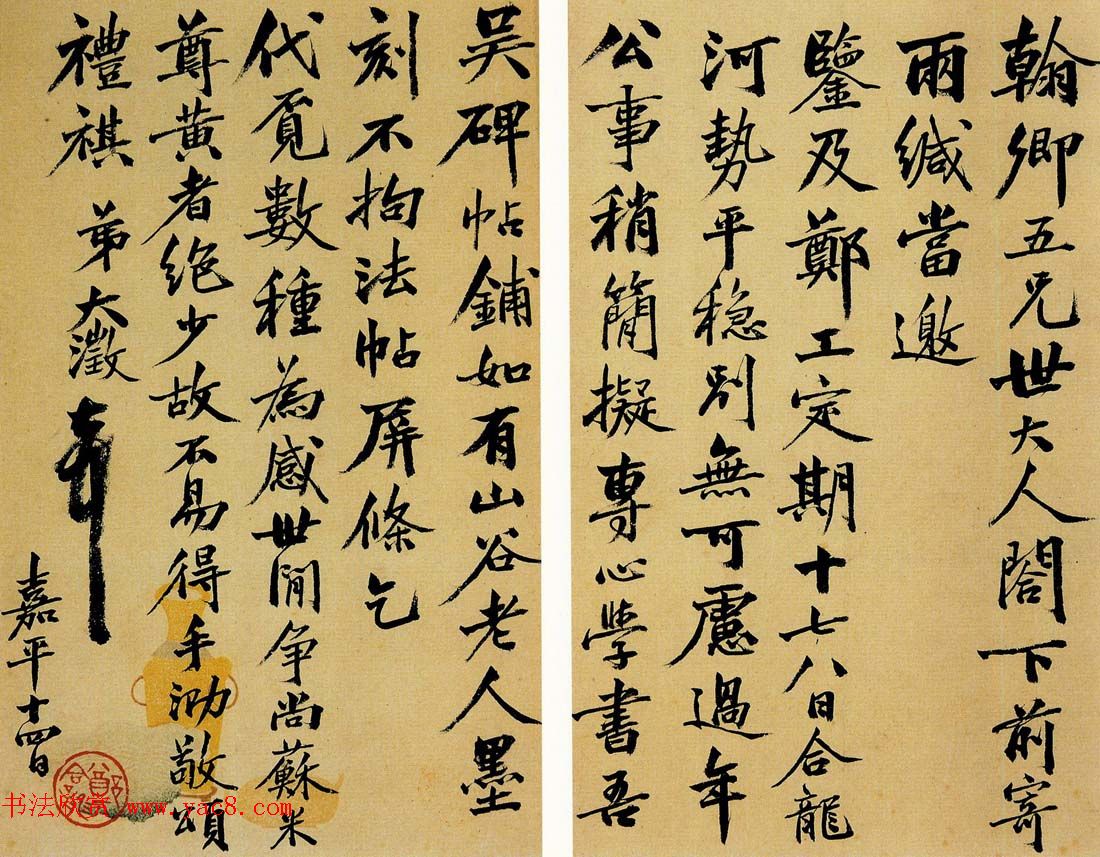 翰卿五兄世大人閣下前寄
兩緘當邀
鑒及鄭工定期十七八日合龍
河勢平穩別無可慮過年
公事稍簡擬專心學書吾
吳碑帖鋪如有山谷老人墨
刻不拘法帖屏條乞
代覓數種為感世間爭尚蘇米
尊黃者絕少故不易得手泐敬頌
禮祺 弟大澂
嘉平十四日
书法欣赏 www.yac8.com